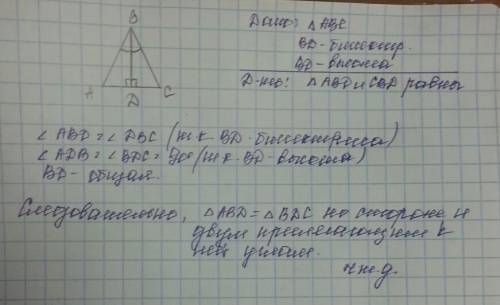 B
A
D
C
Дано: △ABC
BD - биссектр.
BD - высота
Д-ть: △ABD и CBD равны
∠ABD = ∠DBC (т.к. BD - биссектриса)
∠ADB = ∠BDC = 90 (т.к. BD - высота)
BD - общая.
Следовательно, △ABD = △BDC по стороне и
двум прилегающим к
ней углам.
ч.т.д.